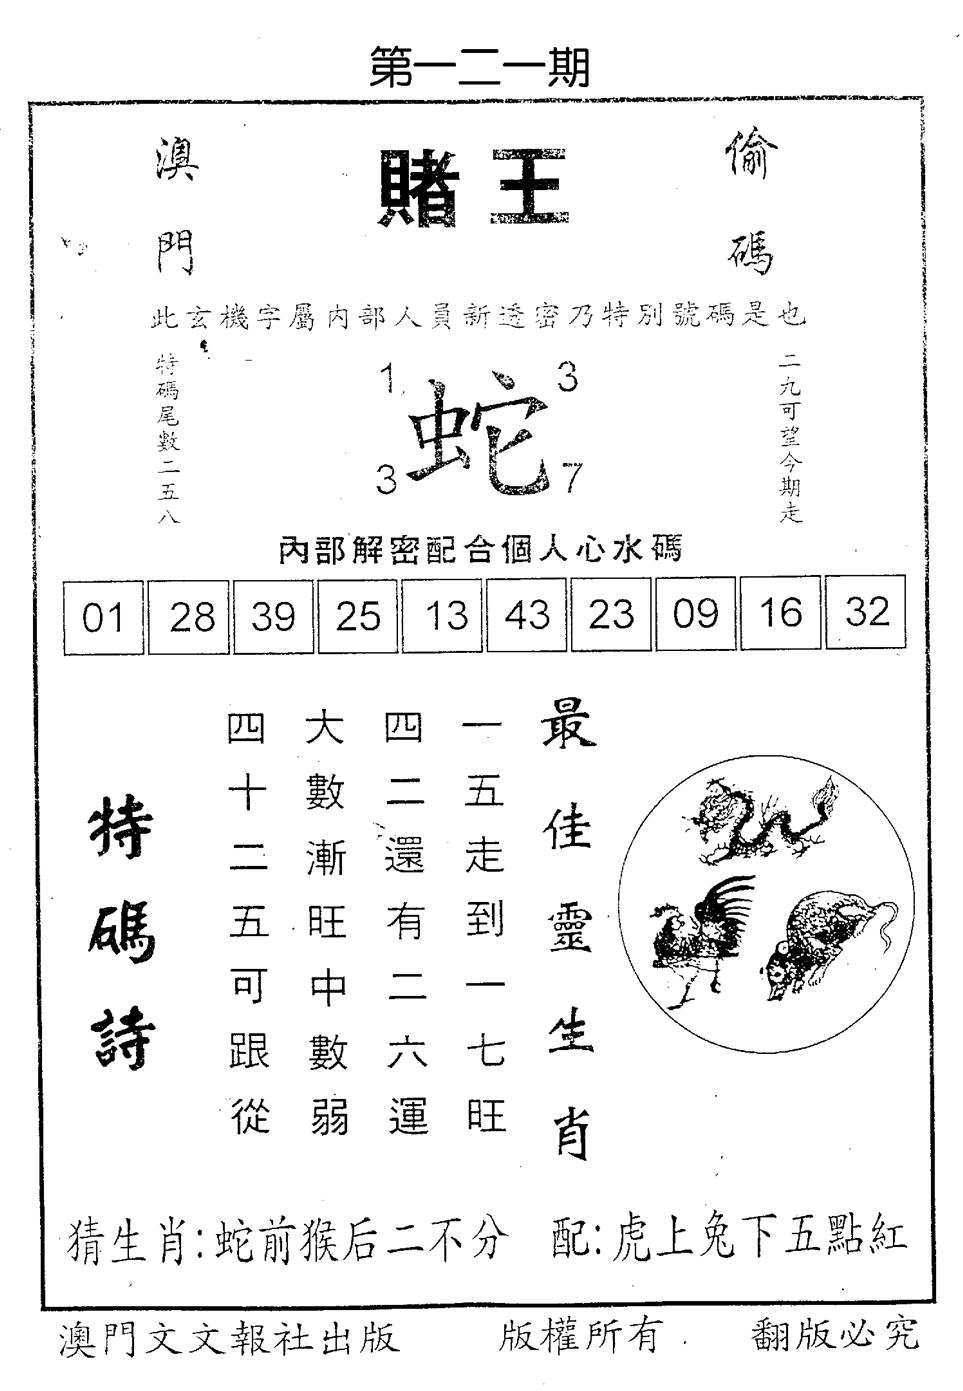 第一二一期
澳門
賭王
偷碼
此玄機字屬內部人員新透密乃特別號碼是也
特碼尾數二五八
1 3
蛇
3 7
二九可望今期走
內部解密配合個人心水碼
01 28 39 25 13 43 23 09 16 32
最佳靈生肖
一五走到一七旺
四二還有二六運
大數漸旺中數弱
四十二五可跟從
特碼詩
猜生肖:蛇前猴后二不分 配:虎上兔下五點紅
澳門文文報社出版 版權所有 翻版必究